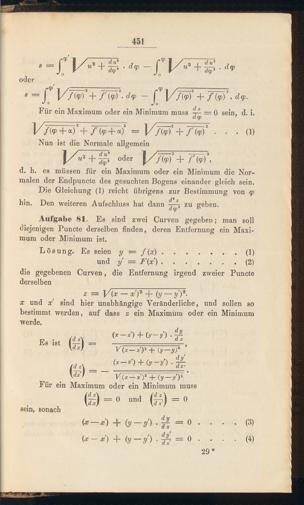 451
s = ∫₀^φ' √(u² + du²/dφ²) . dφ − ∫₀^φ √(u² + du²/dφ²) . dφ
oder
s = ∫₀^φ' √(f(φ)² + f'(φ)²) . dφ − ∫₀^φ √(f(φ)² + f'(φ)²) . dφ.
Für ein Maximum oder ein Minimum muss ds/dφ = 0 sein, d. i.
√(f(φ+α)² + f'(φ+α)²) = √(f(φ)² + f'(φ)²) . . . (1)
Nun ist die Normale allgemein
√(u² + du²/dφ²) oder √(f(φ)² + f'(φ)²),
d. h. es müssen für ein Maximum oder ein Minimum die Nor-
malen der Endpuncte des gesuchten Bogens einander gleich sein.
Die Gleichung (1) reicht übrigens zur Bestimmung von φ
hin. Den weiteren Aufschluss hat dann d²s/dφ² zu geben.
Aufgabe 81. Es sind zwei Curven gegeben; man soll
diejenigen Puncte derselben finden, deren Entfernung ein Maxi-
mum oder Minimum ist.
Lösung. Es seien y = f(x) . . . . . . . (1)
und y' = F(x') . . . . . . . (2)
die gegebenen Curven, die Entfernung irgend zweier Puncte
derselben
z = √((x − x')² + (y − y')²).
x und x' sind hier unabhängige Veränderliche, und sollen so
bestimmt werden, auf dass z ein Maximum oder ein Minimum
werde.
Es ist (dz/dx) = ((x−x') + (y−y') . dy/dx) / √((x−x')² + (y−y')²),
(dz/dx') = − ((x−x') + (y−y') . dy'/dx') / √((x−x')² + (y−y')²).
Für ein Maximum oder ein Minimum muss
(dz/dx) = 0 und (dz/dx') = 0
sein, sonach
(x − x') + (y − y') . dy/dx = 0 . . . . (3)
(x − x') + (y − y') . dy'/dx' = 0 . . . . (4)
29*